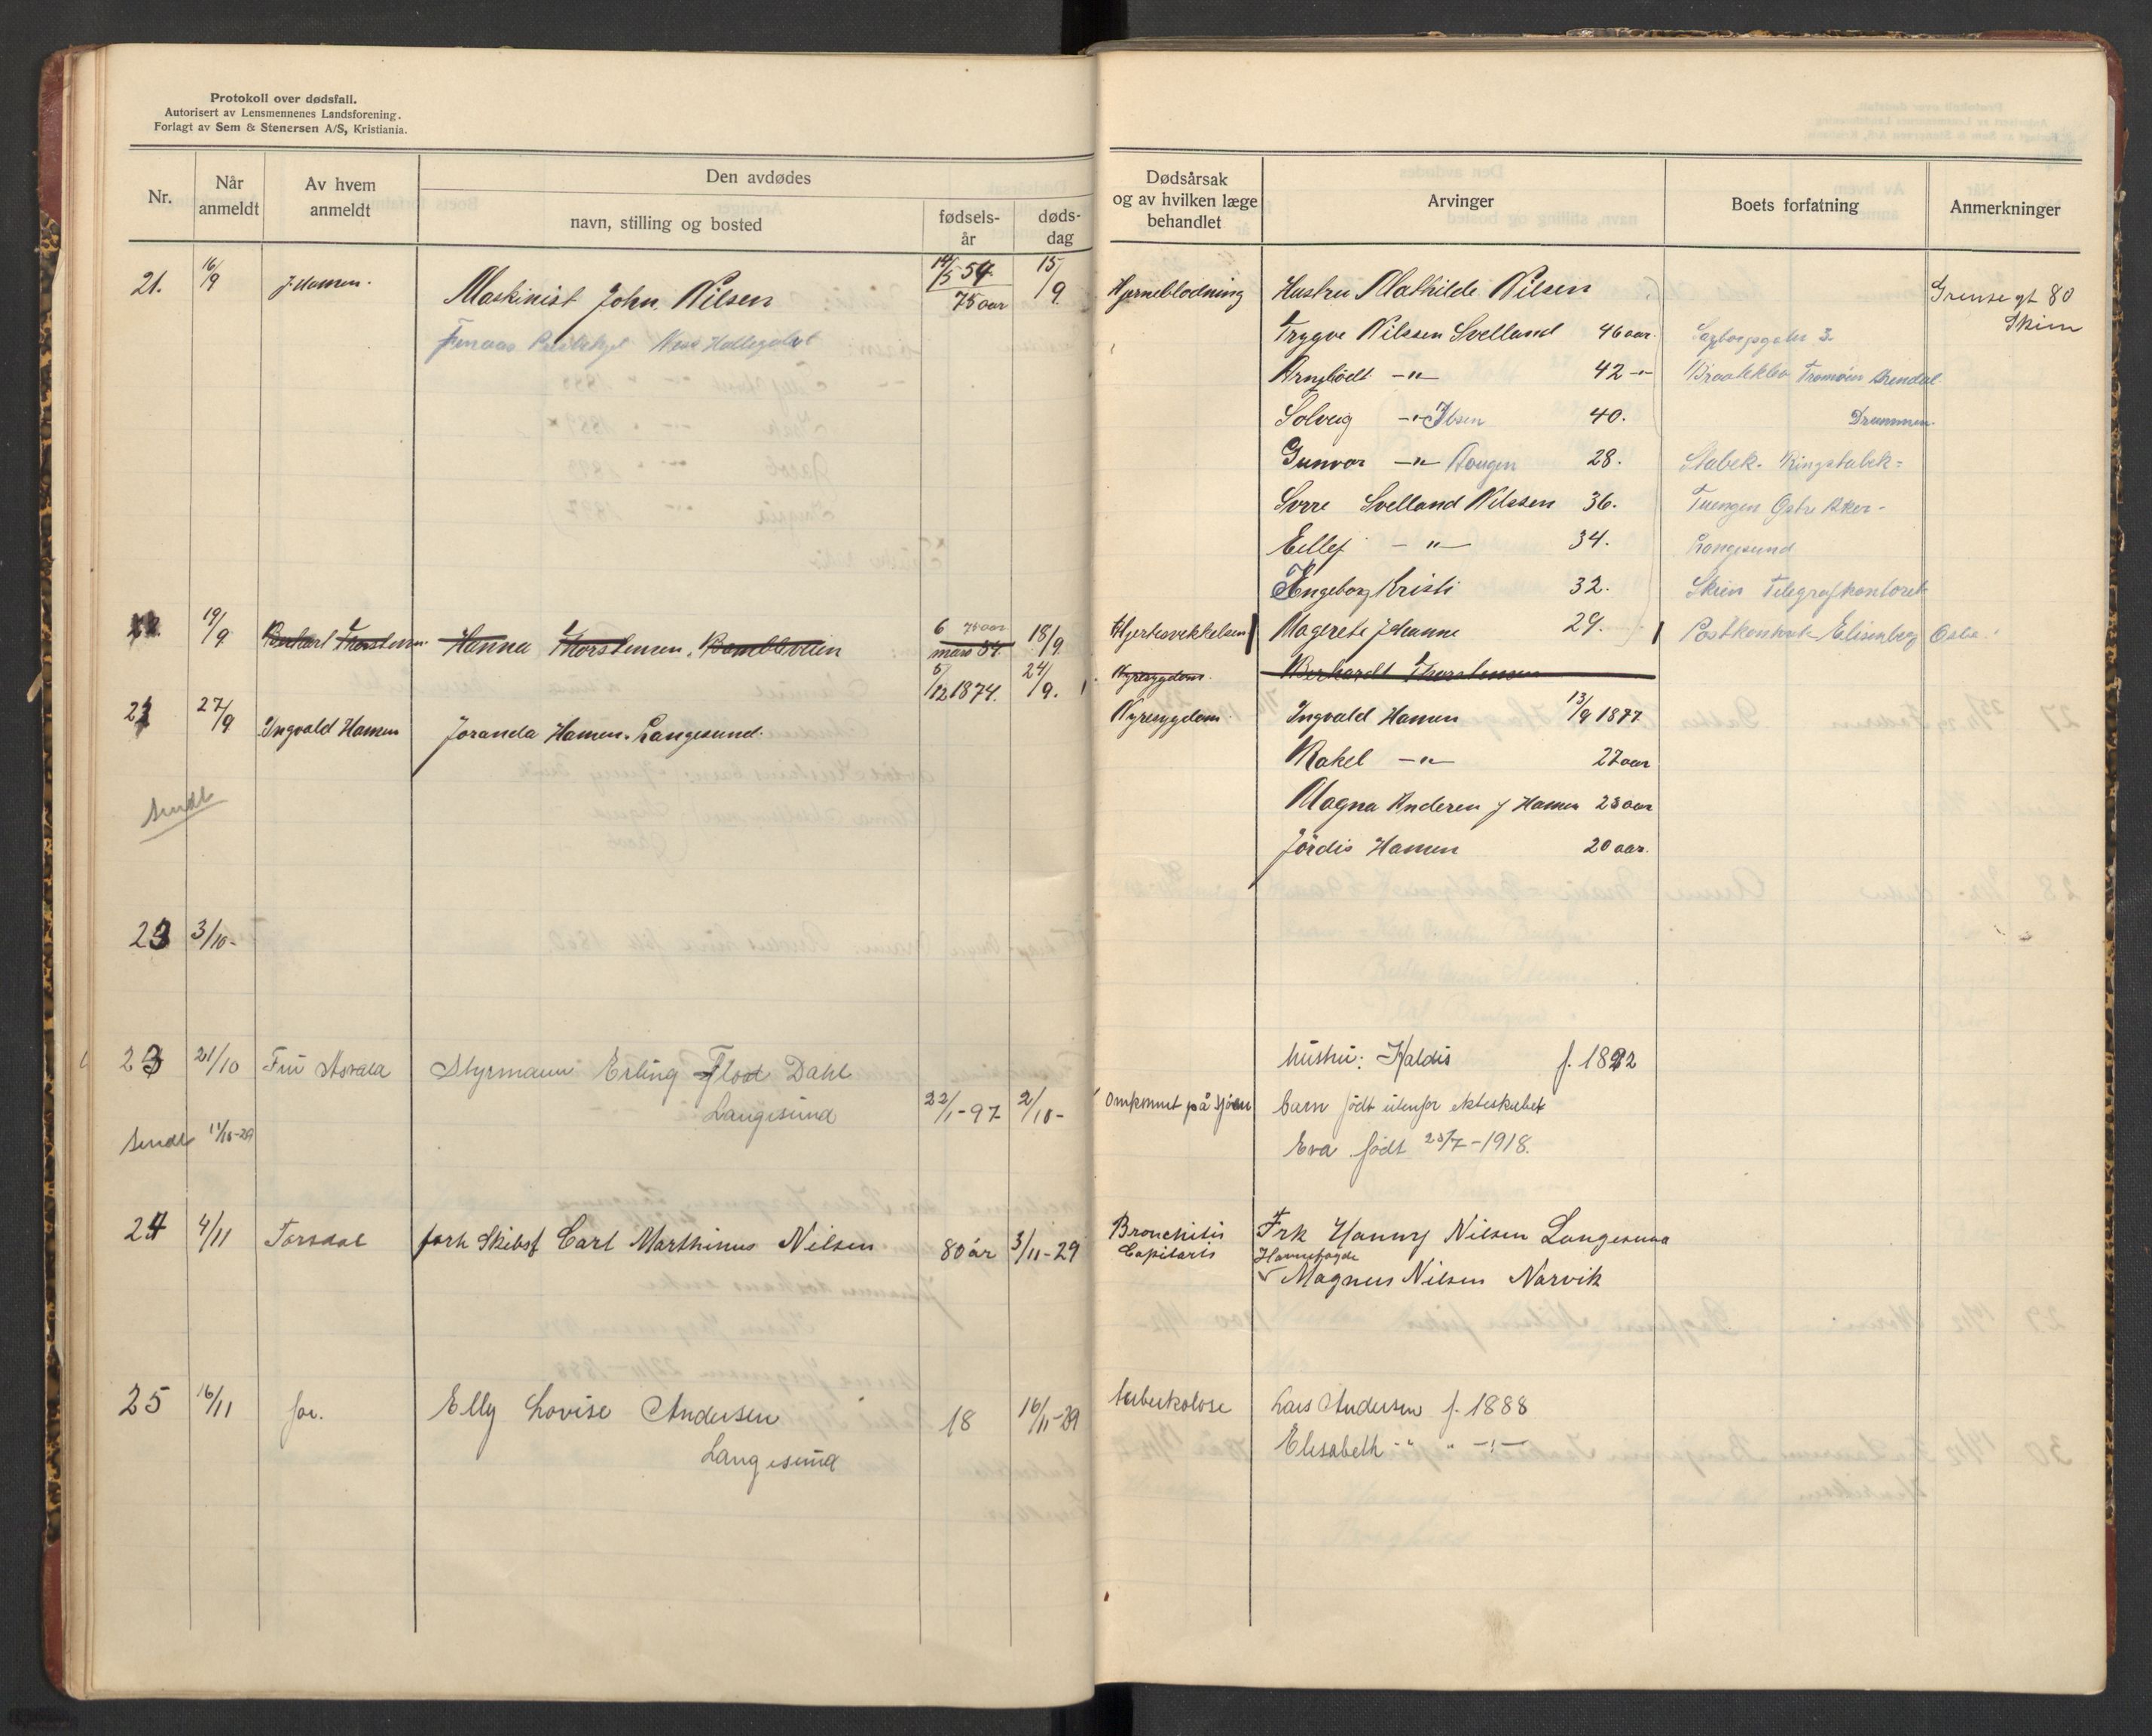 Protokoll over dødsfall.
Autorisert av Lensmennenes Landsforening.
Forlagt av Sem & Stenersen A/S, Kristiania.
Nr.
Når anmeldt
Av hvem anmeldt
Den avdødes
navn, stilling og bosted
fødsels-år
døds-dag
Dødsårsak og av hvilken læge behandlet
Arvinger
Boets forfatning
Anmerkninger
21. 16/9 Maskinist John. Nilsen 14/5 54. 75 aar 15/9. Hjerneblødning Hustru Mathilde Nilsen Grensegt 80
Skien
Trygve Nilssen Svelland 46 aar.
-"- 42 -"- Tromöen Arendal
Solveig -"- Ibsen 40. Drammen.
Gunvor -"- Haugen 28. Stabek. Ringstabek
Svrre Svelland Nilssen 36. Tuengen Östre Aker-
Eilef -"- 34. Langesund
Ingeborg Kristi 32. Skien Telegrafkontoret
19/9 Thorstensen Hanna Thorstensen. 6 75 aar mars 54. 18/9. Hjertesvekkelsen Magrete Johanne 29. Postkontoret Elisenberg Oslo.
Nyresygdom. Berhardt Thorstensen
27/9 Ingvald Hansen Joranda Hansen. Langesund. 5/12 1874. 24/9. Nyresygdom. Ingvald Hansen 13/9 1877
Rakel -"- 27 aar
Sendt
Magna Andersen f Hansen 23 aar
Jördis Hansen 20 aar.
23 3/10-
23 21/10 Fru Styrmann Erling Flod Dahl hustru: Haldis f. 1892
Langesund 22/1-97 2/10- Omkommet på sjöen barn född utenfor ekteskabet
Sendt 11/10-29
Eva född 23/7-1918.
24 4/11 Torsdal forh Skibsf Carl Marthinus Nilsen 80 år 3/11-29 Bronchitis Capilaris Frk Hanny Nilsen Langesund
Havnefogde
Magnus Nilsen Narvik
25 16/11 for. Elly Lovise Andersen 18 16/11-29 tuberkolose Lars Andersen f. 1888
Langesund
Elisabeth -"- " -"-